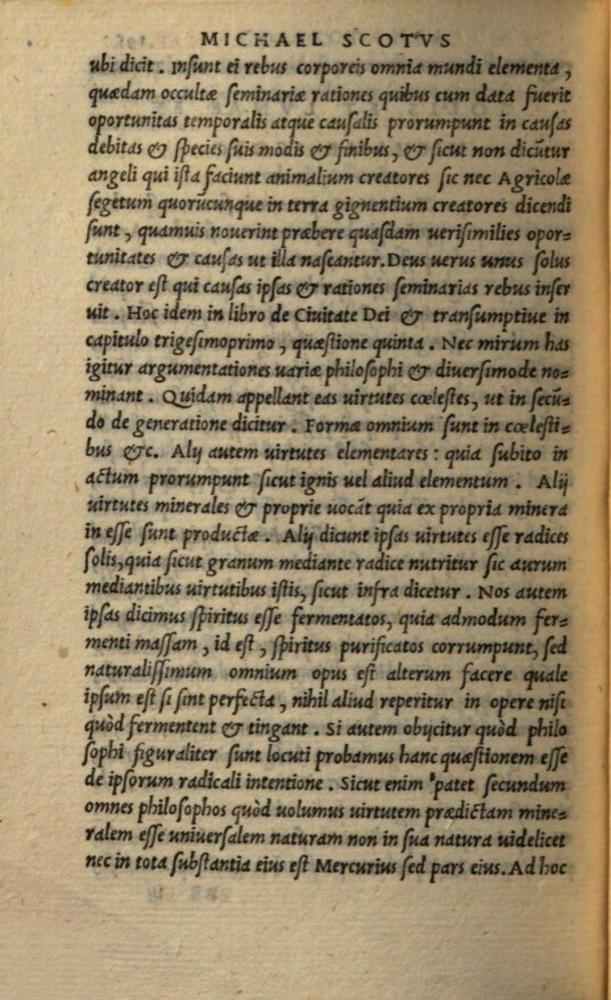 MICHAEL SCOTVS
ubi dicit . Insunt ei rebus corporeis omnia mundi elementa,
quædam occultæ seminariæ rationes quibus cum data fuerit
oportunitas temporalis atque causalis prorumpunt in causas
debitas & species suis modis & finibus, & sicut non dicūtur
angeli qui ista faciunt animalium creatores sic nec Agricolæ
segetum quorucunque in terra gignentium creatores dicendi
sunt, quamuis nouerint præbere quasdam uerisimilies opor=
tunitates & causas ut illa nascantur. Deus uerus unus solus
creator est qui causas ipsas & rationes seminarias rebus inser
uit . Hoc idem in libro de Ciuitate Dei & transumptiue in
capitulo trigesimoprimo, quæstione quinta . Nec mirum has
igitur argumentationes uariæ philosophi & diuersimode no=
minant . Quidam appellant eas uirtutes cœlestes, ut in secū=
do de generatione dicitur . Formæ omnium sunt in cœlesti=
bus &c. Alij autem uirtutes elementares : quia subito in
actum prorumpunt sicut ignis uel aliud elementum . Alij
uirtutes minerales & proprie uocāt quia ex propria minera
in esse sunt productæ . Alij dicunt ipsas uirtutes esse radices
solis, quia sicut granum mediante radice nutritur sic aurum
mediantibus uirtutibus istis, sicut infra dicetur . Nos autem
ipsas dicimus spiritus esse fermentatos, quia admodum fer=
menti massam, id est, spiritus purificatos corrumpunt, sed
naturalissimum omnium opus est alterum facere quale
ipsum est si sint perfecta, nihil aliud reperitur in opere nisi
quòd fermentent & tingant . Si autem obijcitur quòd philo
sophi figuraliter sunt locuti probamus hanc quæstionem esse
de ipsorum radicali intentione . Sicut enim patet secundum
omnes philosophos quòd uolumus uirtutem prædictam mine=
ralem esse uniuersalem naturam non in sua natura uidelicet
nec in tota substantia eius est Mercurius sed pars eius. Ad hoc